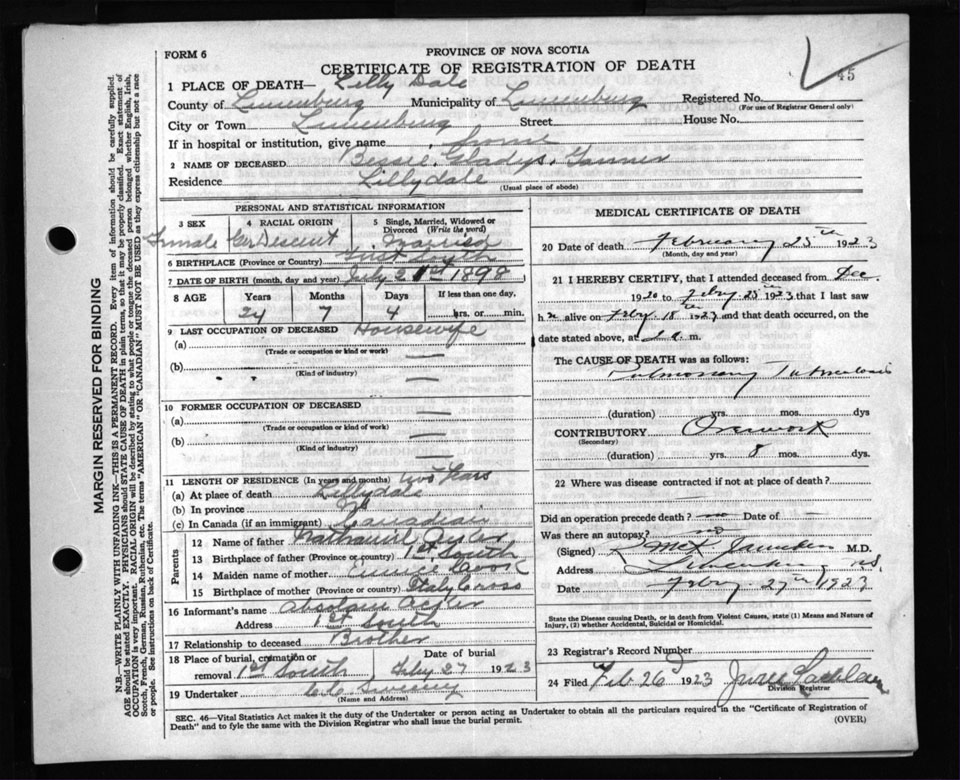 FORM 6
PROVINCE OF NOVA SCOTIA
CERTIFICATE OF REGISTRATION OF DEATH
45
1 PLACE OF DEATH— Lilly Dale
County of Lunenburg Municipality of Lunenburg Registered No.
(For use of Registrar General only)
City or Town Lunenburg Street House No.
If in hospital or institution, give name
2 NAME OF DECEASED Bessie Gladys Tanner
Residence Lillydale
(Usual place of abode)
PERSONAL AND STATISTICAL INFORMATION
3 SEX 4 RACIAL ORIGIN 5 Single, Married, Widowed or Divorced (Write the word)
Female Ger Descent Married
6 BIRTHPLACE (Province or Country) First South
7 DATE OF BIRTH (month, day and year) July 21st 1898
8 AGE Years Months Days If less than one day,
24 7 4 hrs. or min.
9 LAST OCCUPATION OF DECEASED Housewife
(a) —
(Trade or occupation or kind or work)
(b) —
(Kind of industry)
10 FORMER OCCUPATION OF DECEASED
(a) —
(Trade or occupation or kind of work)
(b) —
(Kind of industry)
11 LENGTH OF RESIDENCE (In years and months) two Years
(a) At place of death Lillydale
(b) In province
(c) In Canada (if an immigrant) Canadian
Parents
12 Name of father Nathaniel
13 Birthplace of father (Province or country) 1st South
14 Maiden name of mother Eunice
15 Birthplace of mother (Province or country) Italy Cross
16 Informant's name Absolam
Address 1st South
17 Relationship to deceased Brother
18 Place of burial, cremation or removal 1st South Date of burial Feby 27 1923
19 Undertaker
(Name and Address)
MEDICAL CERTIFICATE OF DEATH
20 Date of death February 25th 1923
(Month, day and year)
21 I HEREBY CERTIFY, that I attended deceased from Dec.
1920 to Feby 25th 1923 that I last saw
h alive on Feby 18th 1923 and that death occurred, on
date stated above, at a. m.
The CAUSE OF DEATH was as follows:
Pulmonary Tuberculosis
(duration) yrs. mos. dys
CONTRIBUTORY Overwork
(Secondary)
(duration) yrs. 8 mos. dys.
22 Where was disease contracted if not at place of death?
Did an operation precede death? no Date of —
Was there an autopsy? no
(Signed) M.D.
Address Lunenburg NS.
Date Feby. 27th 1923
State the Disease causing Death, or in death from Violent Causes, state (1) Means and Nature of Injury, (2) whether Accidental, Suicidal or Homicidal.
23 Registrar's Record Number
24 Filed Feb 26 1923
Division Registrar
SEC. 46—Vital Statistics Act makes it the duty of the Undertaker or person acting as Undertaker to obtain all the particulars required in the "Certificate of Registration of
Death" and to fyle the same with the Division Registrar who shall issue the burial permit.
(OVER)
MARGIN RESERVED FOR BINDING
N.B.—WRITE PLAINLY WITH UNFADING INK—THIS IS A PERMANENT RECORD. Every item of information should be carefully supplied.
AGE should be stated EXACTLY. PHYSICIANS should STATE CAUSE OF DEATH in plain terms, so that it may be properly classified. Exact statement of
OCCUPATION is very important. RACIAL ORIGIN will be described by stating to what people or tongue the deceased person belonged whether English, Irish,
Scotch, French, German, Russian, Ruthenian, etc. The terms "AMERICAN" OR "CANADIAN" MUST NOT BE USED as they express citizenship but not a race
or people. See instructions on back of Certificate.